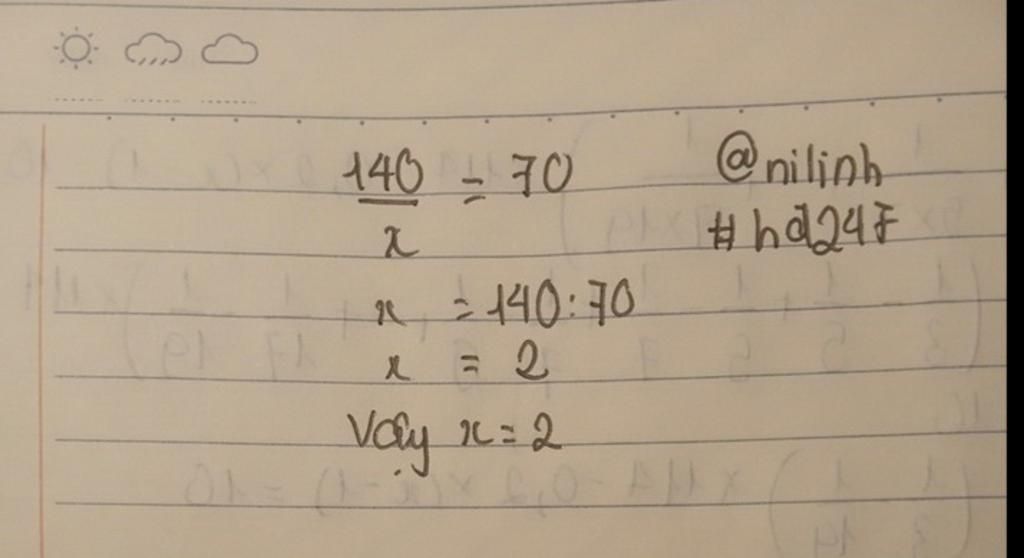 140/x = 70
x = 140 : 70
x = 2
Vậy x = 2
@nilinh
#hd247